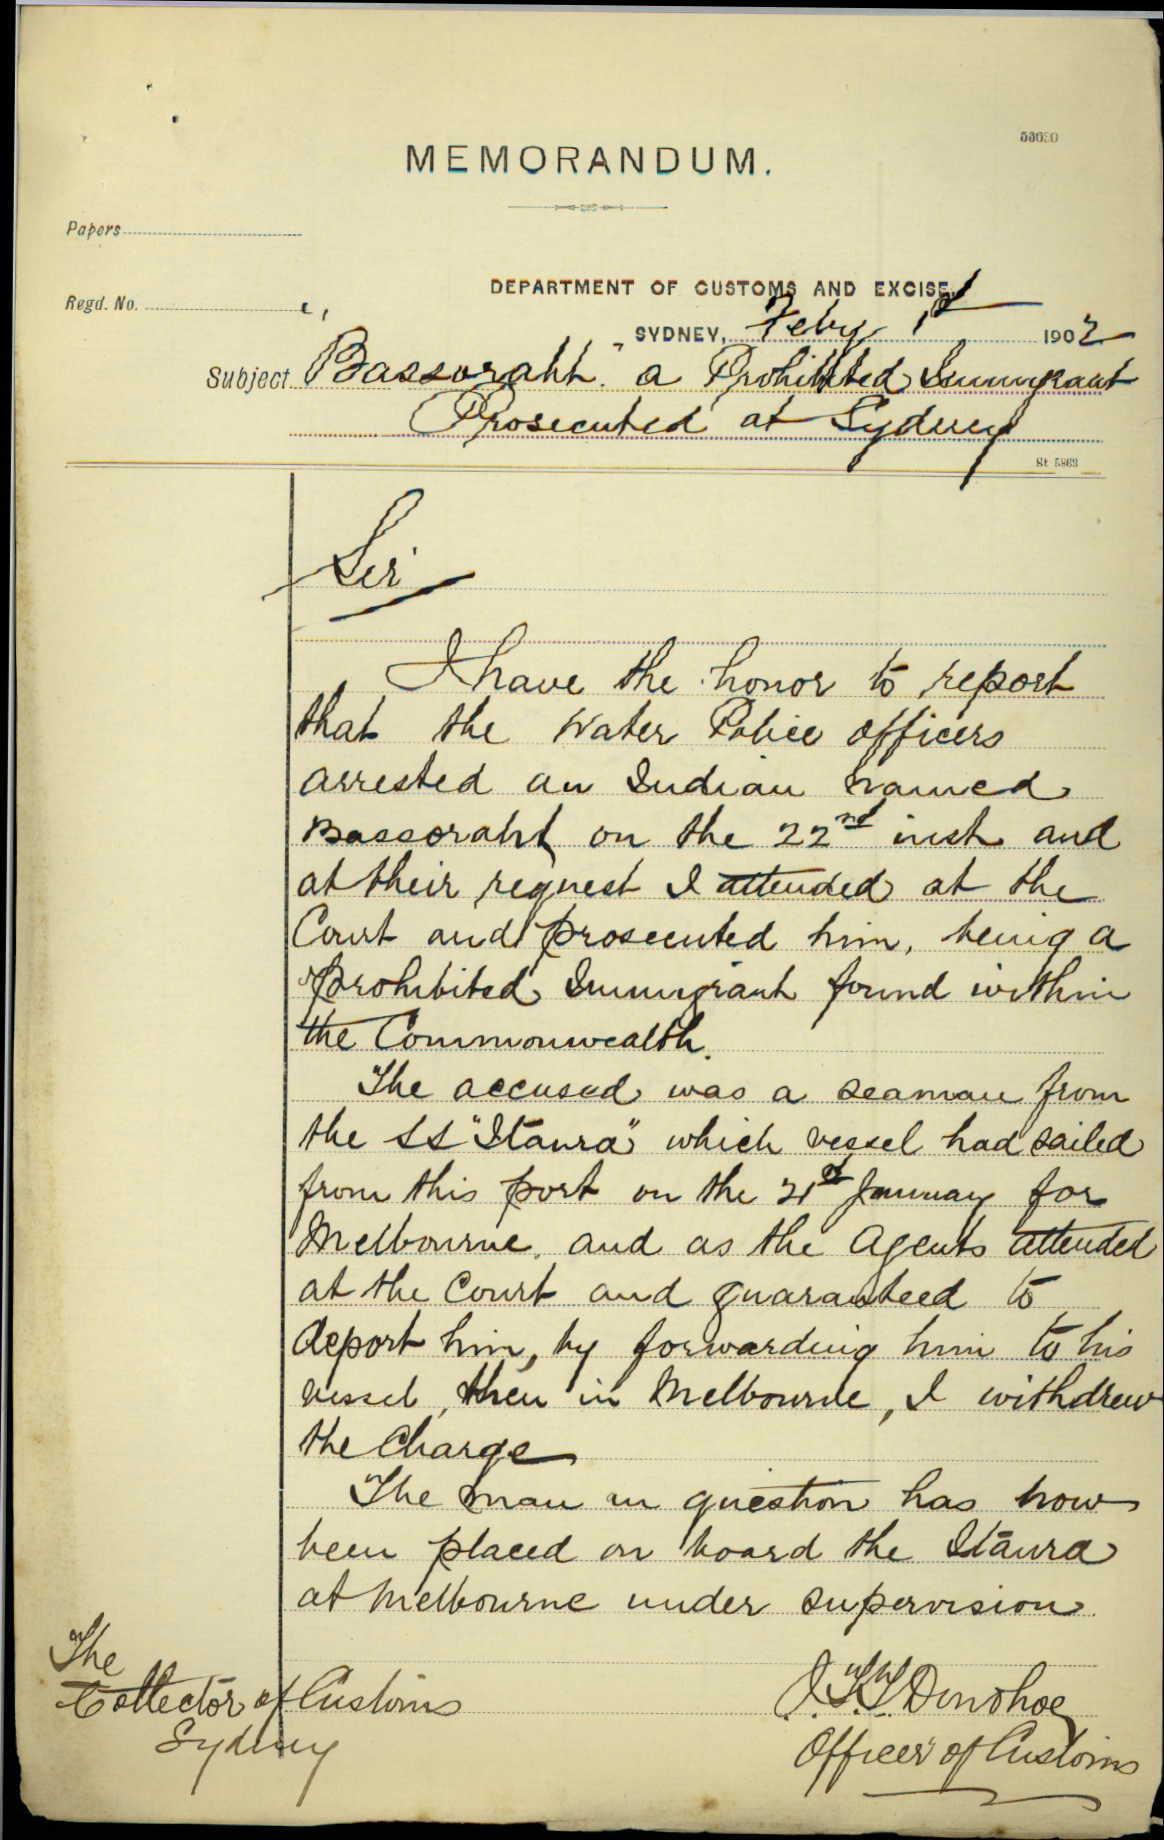 MEMORANDUM.
Papers
Regd. No.
DEPARTMENT OF CUSTOMS AND EXCISE,
SYDNEY, Feby 1st 1902
Subject "Bassoraht" a Prohibited Immigrant
Prosecuted at Sydney
St 5863
Sir
I have the honor to report
that the Water Police officers
arrested an Indian named
Bassoraht on the 22nd inst and
at their request I attended at the
Court and prosecuted him, being a
Prohibited Immigrant found within
the Commonwealth.
The accused was a seaman from
the SS "Itaura" which vessel had sailed
from this port on the 21st January for
Melbourne, and as the Agents attended
at the Court and guaranteed to
deport him, by forwarding him to his
vessel, then in Melbourne, I withdrew
the Charge
The man in question has now
been placed on board the Itaura
at Melbourne under supervision.
The
Collector of Customs
Sydney
Donohoe
Officer of Customs